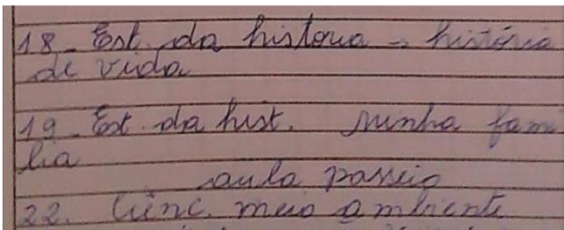 18 - Est. da historia → história
de vida
19 - Est. da hist. Minha fami
lia
aula passeio
22. Ciênc. meio ambiente